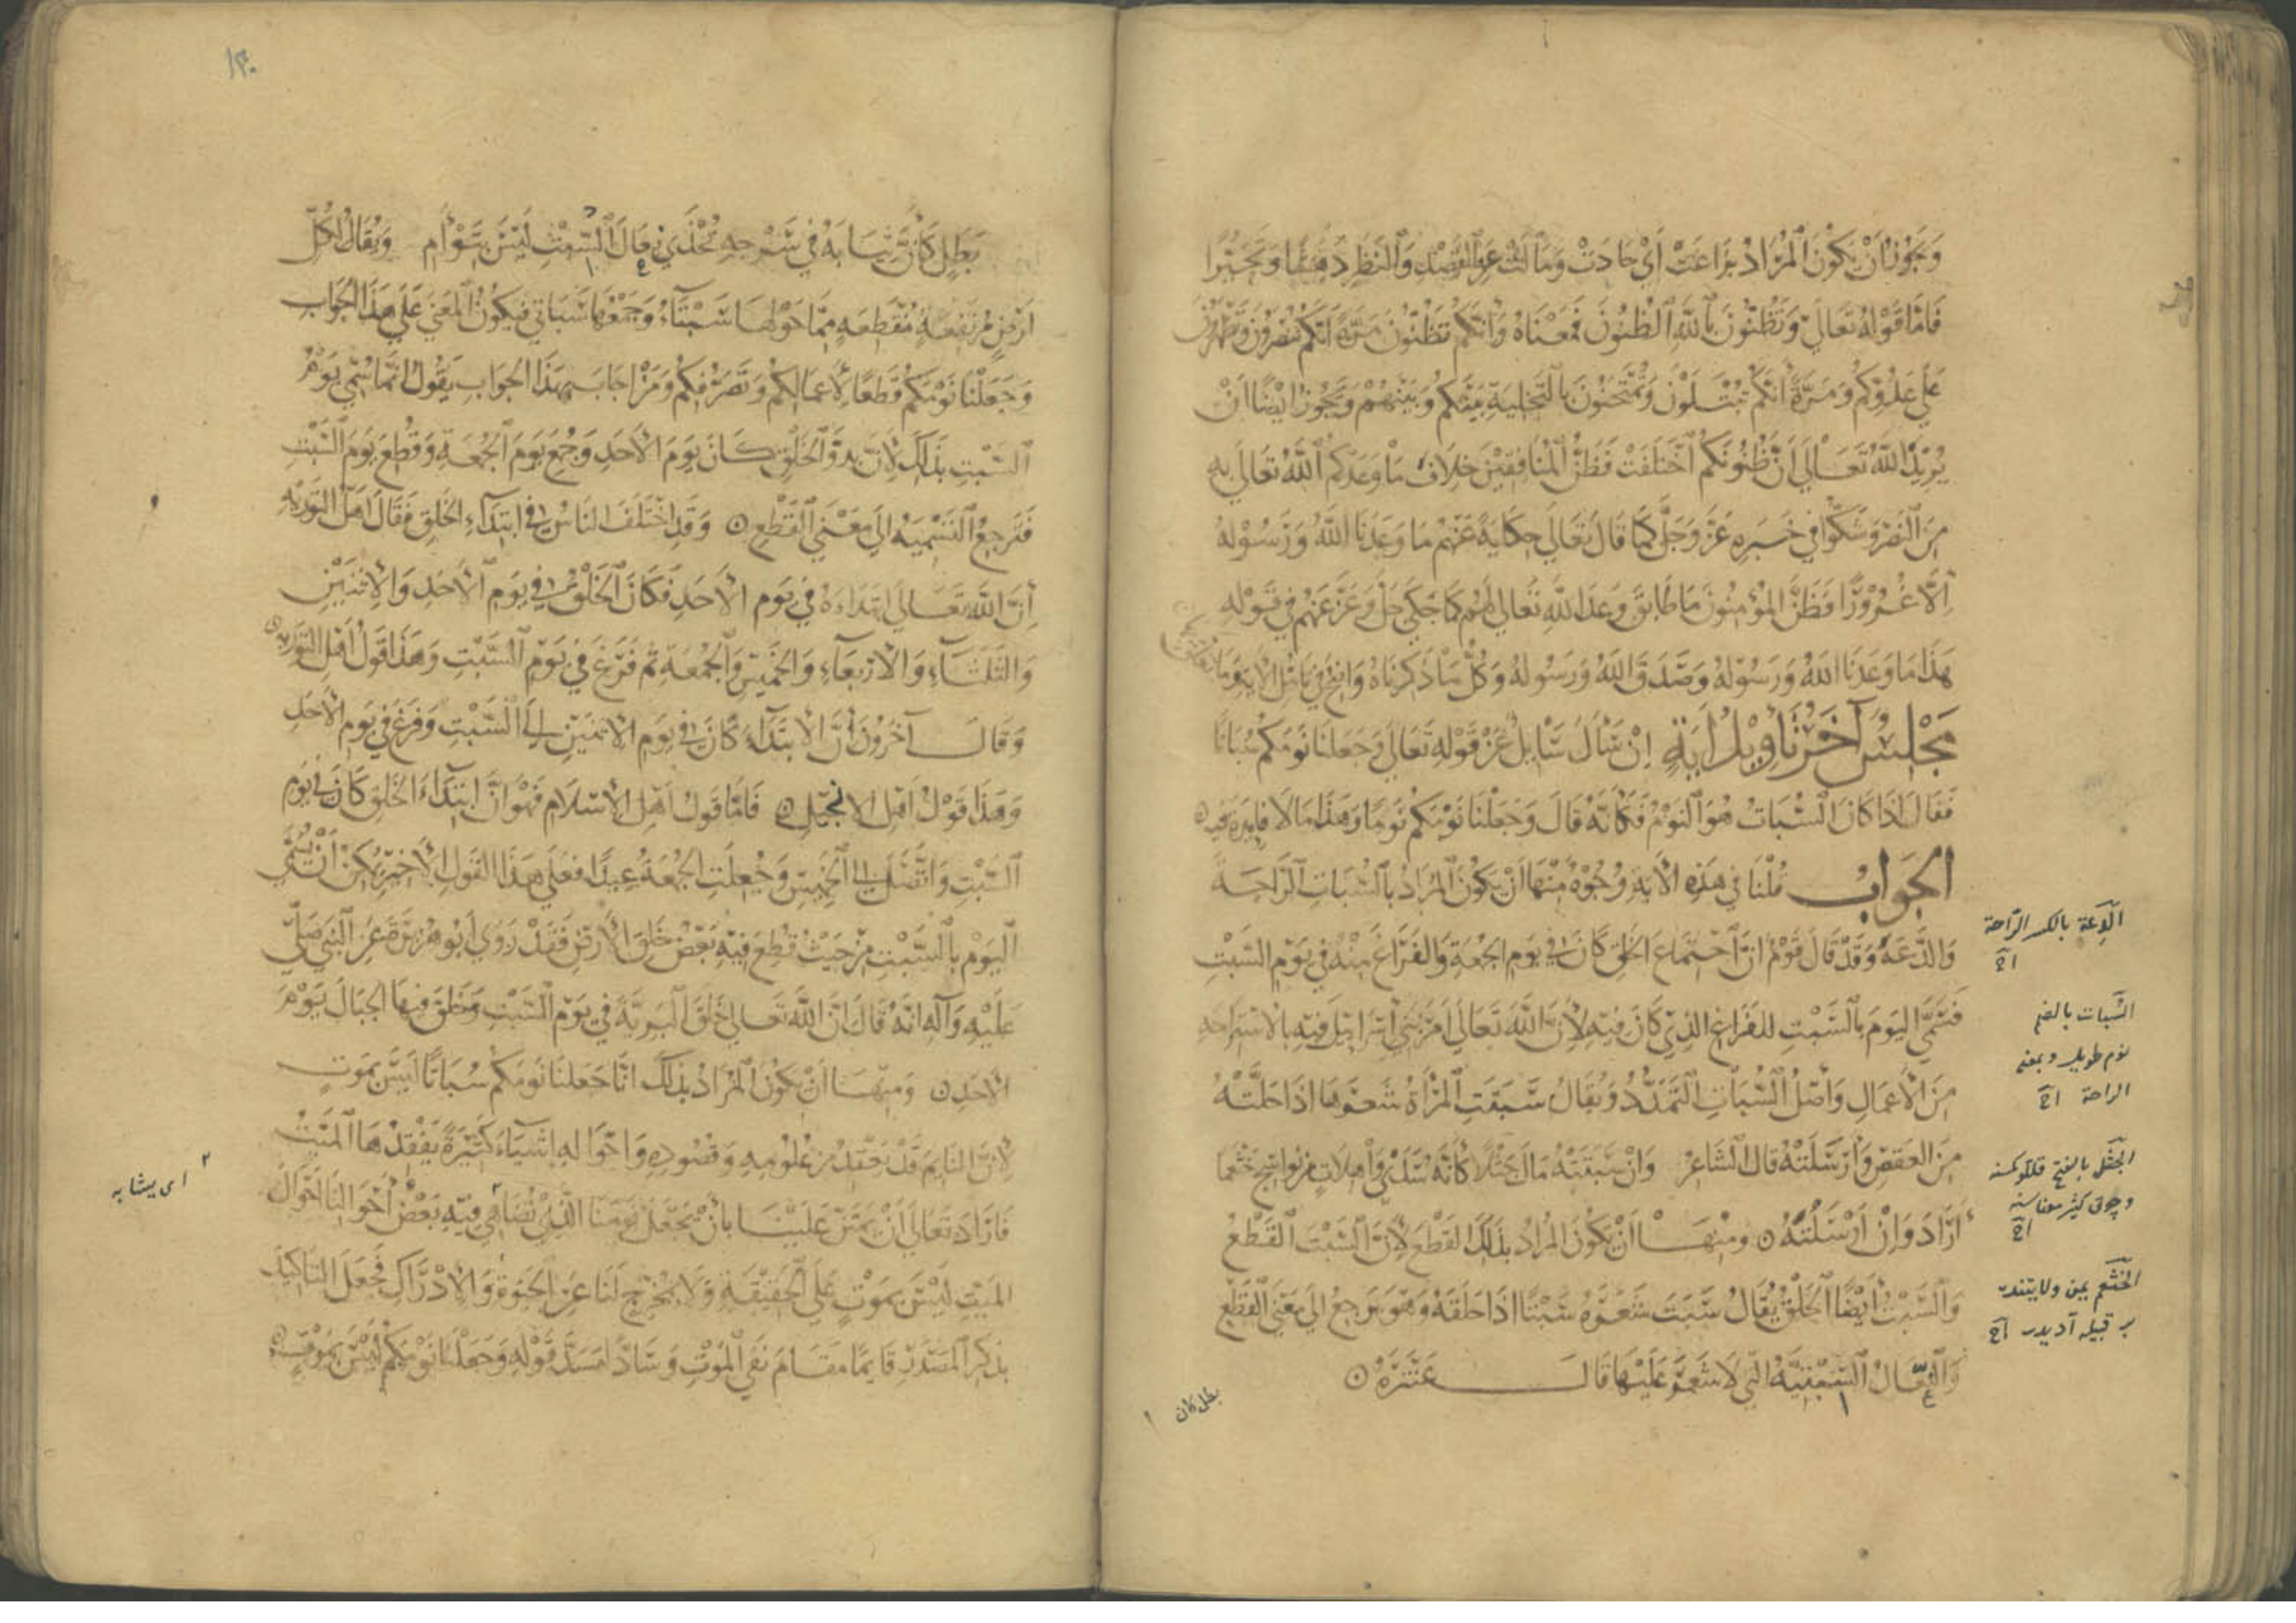 وَيَجُوزُ أَنْ يَكُونَ المُرَادُ بِزَاغَتْ أَيْ حَادَتْ وَمَالَتْ عَنِ القَصْدِ وَالنَّظَرِ دَهَشًا وَتَحَيُّرًا
فَأَمَّا قَوْلُهُ تَعَالَى وَتَظُنُّونَ بِاللَّهِ الظُّنُونَ فَمَعْنَاهُ وَأَنَّكُمْ تَظُنُّونَ مَرَّةً أَنَّكُمْ تُنْصَرُونَ وَتَظْهَرُونَ
عَلَى عَدُوِّكُمْ وَمَرَّةً أَنَّكُمْ تُبْتَلَوْنَ وَتُمْتَحَنُونَ بِالتَّخْلِيَةِ بَيْنَكُمْ وَبَيْنَهُمْ وَيَجُوزُ أَيْضًا أَنْ
يُرِيدَ اللَّهُ تَعَالَى أَنَّ ظُنُونَكُمْ اخْتَلَفَتْ فَظَنَّ المُنَافِقِينَ خِلَافَ مَا وَعَدَكُمْ اللَّهُ تَعَالَى بِهِ
مِنَ النَّصْرِ وَشَكُّوا فِي خَبَرِهِ عَزَّ وَجَلَّ كَمَا قَالَ تَعَالَى حِكَايَةً عَنْهُمْ مَا وَعَدَنَا اللَّهُ وَرَسُولُهُ
إِلَّا غُرُورًا فَظَنَّ المُؤْمِنُونَ مَا طَابَقَ وَعْدَ اللَّهِ تَعَالَى لَهُمْ كَمَا حَكَى جَلَّ وَعَزَّ عَنْهُمْ فِي قَوْلِهِ
هَذَا مَا وَعَدَنَا اللَّهُ وَرَسُولُهُ وَصَدَقَ اللَّهُ وَرَسُولُهُ وَكُلُّ مَا ذَكَرْنَاهُ وَاضِحٌ فِي تَأْوِيلِ الآيَةِ وَمَا
مَجْلِسٌ آخَرُ تَأْوِيلُ آيَةٍ إِنْ سَأَلَ سَائِلٌ عَنْ قَوْلِهِ تَعَالَى وَجَعَلْنَا نَوْمَكُمْ سُبَاتًا
فَقَالَ إِذَا كَانَ السُّبَاتُ هُوَ النَّوْمُ فَكَأَنَّهُ قَالَ وَجَعَلْنَا نَوْمَكُمْ نَوْمًا وَهَذَا مَا لَا فَائِدَةَ فِيهِ
الجَوَابُ قُلْنَا فِي هَذِهِ الآيَةِ وُجُوهٌ مِنْهَا أَنْ يَكُونَ المُرَادُ بِالسُّبَاتِ الرَّاحَةَ
وَالدَّعَةَ وَقَدْ قَالَ قَوْمٌ إِنَّ اجْتِمَاعَ الخَلْقِ كَانَ فِي يَوْمِ الجُمُعَةِ وَالفَرَاغَ مِنْهُ فِي يَوْمِ السَّبْتِ
فَسُمِّيَ اليَوْمَ بِالسَّبْتِ لِلْفَرَاغِ الَّذِي كَانَ فِيهِ لِأَنَّ اللَّهَ تَعَالَى أَمَرَ بَنِي إِسْرَائِيلَ فِيهِ بِالاسْتِرَاحَةِ
مِنَ الأَعْمَالِ وَأَصْلُ السُّبَاتِ التَّمَدُّدُ وَيُقَالُ سَبَتَتِ المَرْأَةُ شَعْرَهَا إِذَا حَلَّتْهُ
مِنَ العَقْصِ وَأَرْسَلَتْهُ قَالَ الشَّاعِرُ وَإِنْ سَبَتَتْهُ مَالَ جَثْلًا كَأَنَّهُ سَدَى وَاهِلَاتٍ مِنْ نَوَاسِجِ خَثْعَمَا
أَرَادَ وَإِنْ أَرْسَلَتْهُ وَمِنْهَا أَنْ يَكُونَ المُرَادُ بِذَلِكَ القَطْعَ لِأَنَّ السَّبْتَ القَطْعُ
وَالسَّبْتُ أَيْضًا الحَلْقُ يُقَالُ سَبَتَ شَعْرَهُ سَبْتًا إِذَا حَلَقَهُ وَهُوَ يَرْجِعُ إِلَى مَعْنَى القَطْعِ
وَالنِّعَالُ السِّبْتِيَّةُ الَّتِي لَا شَعْرَ عَلَيْهَا قَالَ عَنْتَرَةُ
بطل كان
الدعة بالكسر الراحة
السبات بالضم
نوم طويل وبمعنى
الراحة
الجثل بالفتح
بَطَلٍ كَأَنَّ ثِيَابَهُ فِي سَرْحَةٍ تُحْذَى نِعَالَ السِّبْتِ لَيْسَ بِتَوْأَمِ وَيُقَالُ لِكُلِّ
أَرْضٍ مُرْتَفِعَةٍ مُنْقَطِعَةٍ مِمَّا حَوْلَهَا سَبْتَاءُ وَجَمْعُهَا سَبَاتِي فَيَكُونُ المَعْنَى عَلَى هَذَا الجَوَابِ
وَجَعَلْنَا نَوْمَكُمْ قَطْعًا لِأَعْمَالِكُمْ وَتَصَرُّفِكُمْ وَمَنْ أَجَابَ بِهَذَا الجَوَابِ يَقُولُ إِنَّمَا سُمِّيَ يَوْمُ
السَّبْتِ بِذَلِكَ لِأَنَّ بَدْوَ الخَلْقِ كَانَ يَوْمَ الأَحَدِ وَجُمِعَ يَوْمَ الجُمُعَةِ وَقُطِعَ يَوْمَ السَّبْتِ
فَتَرْجِعُ التَّسْمِيَةُ إِلَى مَعْنَى القَطْعِ وَقَدِ اخْتَلَفَ النَّاسُ فِي ابْتِدَاءِ الخَلْقِ فَقَالَ أَهْلُ التَّوْرَاةِ
إِنَّ اللَّهَ تَعَالَى ابْتَدَأَهُ فِي يَوْمِ الأَحَدِ فَكَانَ الخَلْقُ فِي يَوْمِ الأَحَدِ وَالإِثْنَيْنِ
وَالثَّلَثَاءِ وَالأَرْبَعَاءِ وَالخَمِيسِ وَالجُمُعَةِ ثُمَّ فَرَغَ فِي يَوْمِ السَّبْتِ وَهَذَا قَوْلُ أَهْلِ التَّوْرَاةِ
وَقَالَ آخَرُونَ إِنَّ الابْتِدَاءَ كَانَ فِي يَوْمِ الإِثْنَيْنِ إِلَى السَّبْتِ وَفَرَغَ فِي يَوْمِ الأَحَدِ
وَهَذَا قَوْلُ أَهْلِ الإِنْجِيلِ فَأَمَّا قَوْلُ أَهْلِ الإِسْلَامِ فَهُوَ أَنَّ ابْتِدَاءَ الخَلْقِ كَانَ فِي يَوْمِ
السَّبْتِ وَاتَّصَلَ إِلَى الخَمِيسِ وَجُعِلَتِ الجُمُعَةُ عِيدًا فَعَلَى هَذَا القَوْلِ الأَخِيرِ يُمْكِنُ أَنْ يُسَمَّى
اليَوْمُ بِالسَّبْتِ مِنْ حَيْثُ قُطِعَ فِيهِ بَعْضُ خَلْقِ الأَرْضِ فَقَدْ رَوَى أَبُو هُرَيْرَةَ عَنِ النَّبِيِّ صَلَّى
عَلَيْهِ وَآلِهِ أَنَّهُ قَالَ إِنَّ اللَّهَ تَعَالَى خَلَقَ البَرِيَّةَ فِي يَوْمِ السَّبْتِ وَخَلَقَ فِيهَا الجِبَالَ يَوْمَ
الأَحَدِ وَمِنْهَا أَنْ يَكُونَ المُرَادُ بِذَلِكَ إِنَّا جَعَلْنَا نَوْمَكُمْ سُبَاتًا لَيْسَ بِمَوْتٍ
لِأَنَّ النَّائِمَ قَدْ يَفْقِدُ مِنْ عُلُومِهِ وَقُصُودِهِ وَأَحْوَالِهِ أَشْيَاءَ كَثِيرَةً يَفْقِدُهَا المَيِّتُ
فَأَرَادَ تَعَالَى أَنْ يَمْتَنَّ عَلَيْنَا بِأَنْ جَعَلَ نَوْمَنَا الَّذِي تُضَاهِي فِيهِ بَعْضُ أَحْوَالِنَا أَحْوَالَ
المَيِّتِ لَيْسَ بِمَوْتٍ عَلَى الحَقِيقَةِ وَلَا بِمُخْرِجٍ لَنَا عَنِ الحَيَوةِ وَالإِدْرَاكِ فَجَعَلَ التَّأْكِيدَ
بِذِكْرِ المَصْدَرِ قَائِمًا مَقَامَ نَفْيِ المَوْتِ وَسَادًّا مَسَدَّ قَوْلِهِ وَجَعَلْنَا نَوْمَكُمْ لَيْسَ بِمَوْتٍ
اى يشابه